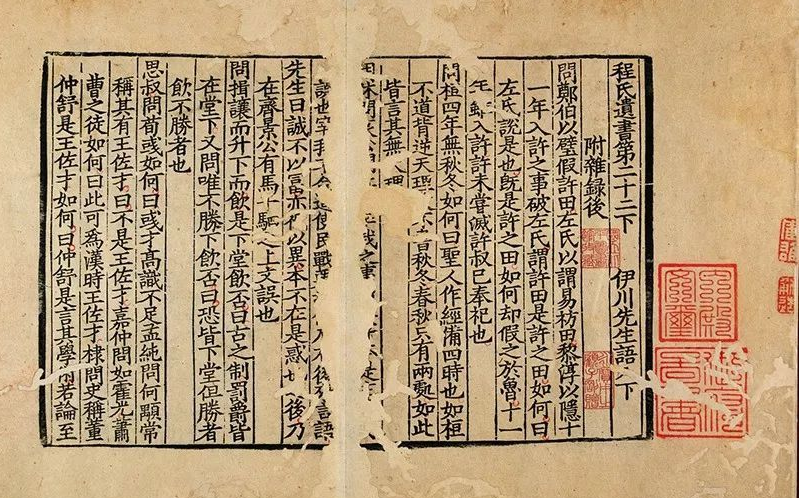 程氏遺書第二十二下　伊川先生語　下
附雜錄後
問鄭伯以璧假許田左氏以謂易祊田黎淳以隱十
一年入許之事破左氏謂許田是許之田如何曰
左氏說是也旣是許之田如何却假之於魯十一
年 入許許未嘗滅許叔已奉祀也
問桓四年無秋冬如何曰聖人作經備四時也如桓
不道背逆天理 秋冬春秋只有兩處如此
皆言其無 理
先生曰誠不以富亦 以異本不在是惑 後乃
在齊景公有馬千駟之上文誤也
問揖讓而升下而飲是下堂飲否曰古之制罰爵皆
在堂下又問唯不勝下飲否曰恐皆下堂但勝者
飲不勝者也
思叔問荀彧如何曰彧才高識不足孟純問何顒常
稱其有王佐才曰不是王佐才嘉仲問如霍光蕭
曹之徒如何曰此可爲漢時王佐才棣問史稱董
仲舒是王佐才如何曰仲舒是言其學術若論至